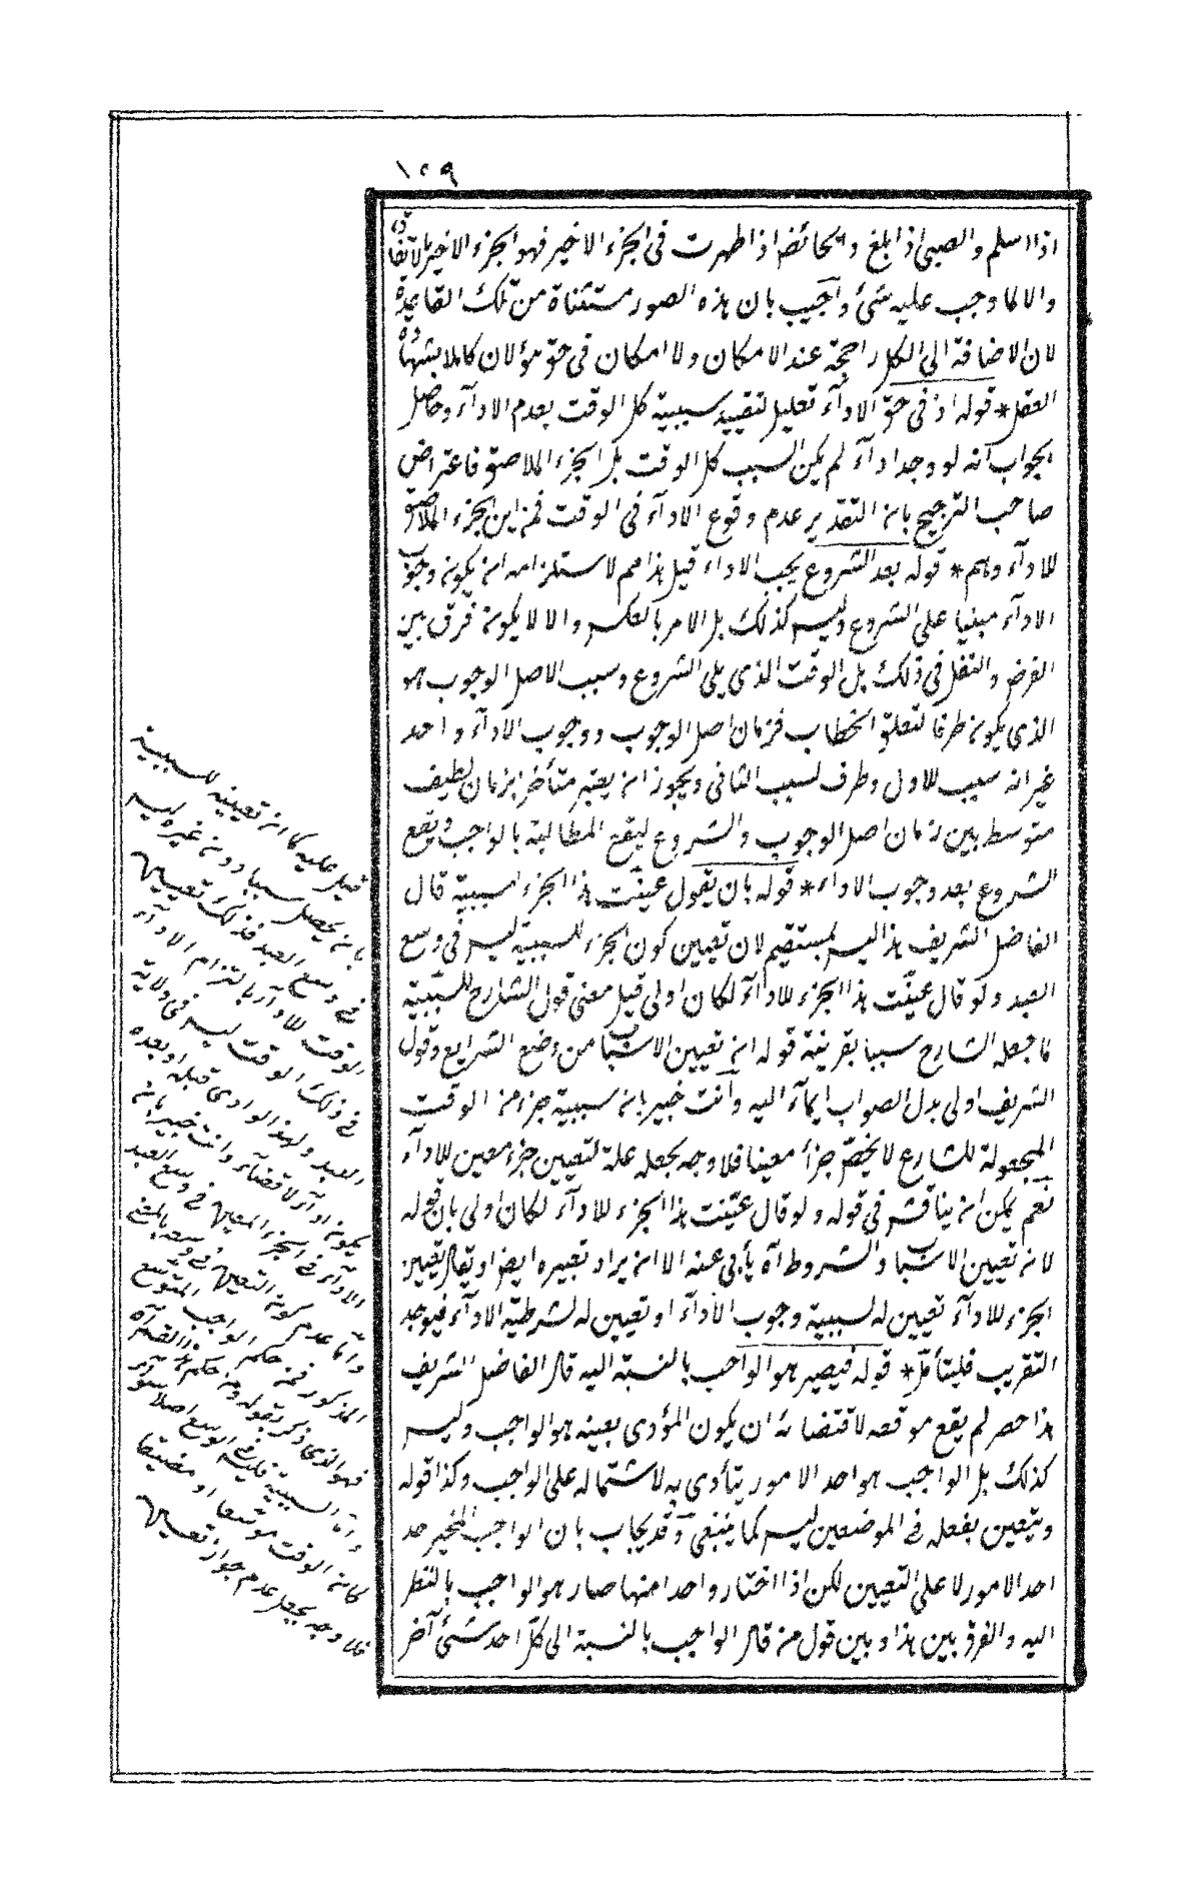 ١٥٩
اذا اسلم والصبى اذا بلغ والحائض اذا طهرت فى الجزء الاخير فهو الجزء الاخير لاتفاقا
والا لما وجب عليه شئ واجيب بان هذه الصور مستثناة من تلك القاعدة
لان الاضافة الى الكل راجحة عند الامكان ولا امكان فى حق هؤلاء كما لا يشهد
العقل * قوله اذ فى حق الاداء تعليل لتقييد سببية كل الوقت بعدم الاداء وحاصل
الجواب انه لو وجد اداء لم يكن السبب كل الوقت بل الجزء الملاصق فاعتراض
صاحب الترجيح بان التقدير عدم وقوع الاداء فى الوقت فمن اين الجزء الملاصق
للاداء وهم * قوله بعد الشروع يجب الاداء قيل هذا مم لاستلزامه ان يكون وجوب
الاداء مبنيا على الشروع وليس كذلك بل الامر بالعكس والا لا يكون فرق بين
الفرض والنفل فى ذلك بل الوقت الذى يلى الشروع وسبب لاصل الوجوب هو
الذى يكون ظرفا لتعلق الخطاب فزمان اصل الوجوب ووجوب الاداء واحد
غير انه سبب للاول وظرف لسبب الثانى ويجوز ان يعتبر متأخرا بزمان لطيف
متوسط بين زمان اصل الوجوب والشروع ليقع المطالبة بالواجب ويقع
الشروع بعد وجوب الاداء * قوله بان يقول عينت هذا الجزء لسببية قال
الفاضل الشريف هذا ليس بمستقيم لان تعيين كون الجزء للسببية ليس فى وسع
العبد ولو قال عينت هذا الجزء للاداء لكان اولى قيل معنى قول الشارح للسببية
ما جعله الشارح سببا بقرينة قوله ان تعيين الاسباب من وضع الشرايع وقول
الشريف اولى بدل الصواب ايماء اليه وانت خبير بان سببية جزء من الوقت
المجعولة للشارع لا يخص جزأ معينا فلا وجه بجعله علة لتعيين جزء معين للاداء
نعم يمكن ان يناقش فى قوله ولو قال عينت هذا الجزء للاداء لكان اولى بان قوله
لان تعيين الاسباب والشروط آه يأبى عنه الا ان يراد تعبيره ايضا ويقال تعيين
الجزء للاداء تعيين له لسببية وجوب الاداء او تعيين له لشرطية الاداء فيوجد
التقريب فليتأمل * قوله فيصير هو الواجب بالنسبة اليه قال الفاضل الشريف
هذا حصر لم يقع موقعه لاقتضائه ان يكون المؤدى بعينه هو الواجب وليس
كذلك بل الواجب هو احد الامور يتأدى به لاشتماله على الواجب وكذا قوله
ويتعين بفعله فى الموضعين ليس كما ينبغى وقد يجاب بان الواجب المخير حد
احد الامور لا على التعيين لكن اذا اختار واحدا منها صار هو الواجب بالنظر
اليه والفرق بين هذا وبين قول من قال الواجب بالنسبة الى كل احد شئ آخر
قيل عليه كما ان تعيينه للسببية
بان يحصل سببا دون غيره ليس
فى وسع العبد فذلك تعيين
الوقت للاداء بالتزام الاداء
فى ذلك الوقت ليس فى ولاية
العبد ولهذا لو ادى قبله او بعده
يكون اداء لا قضاء وانت خبير بان
الاداء فى الجزء المعين فى وسع العبد
واما عدم كون التعيين فى وسعه بالمعنى
المذكور فمن حكم الواجب الموسع
فهو الذى ذكر بقوله ومن حكم هذا القسم آه
واما السببية فليس فى الوسع اصلا سواء
كان الوقت موسعا او مضيقا
فلا وجه بجعل عدم جواز تعيين